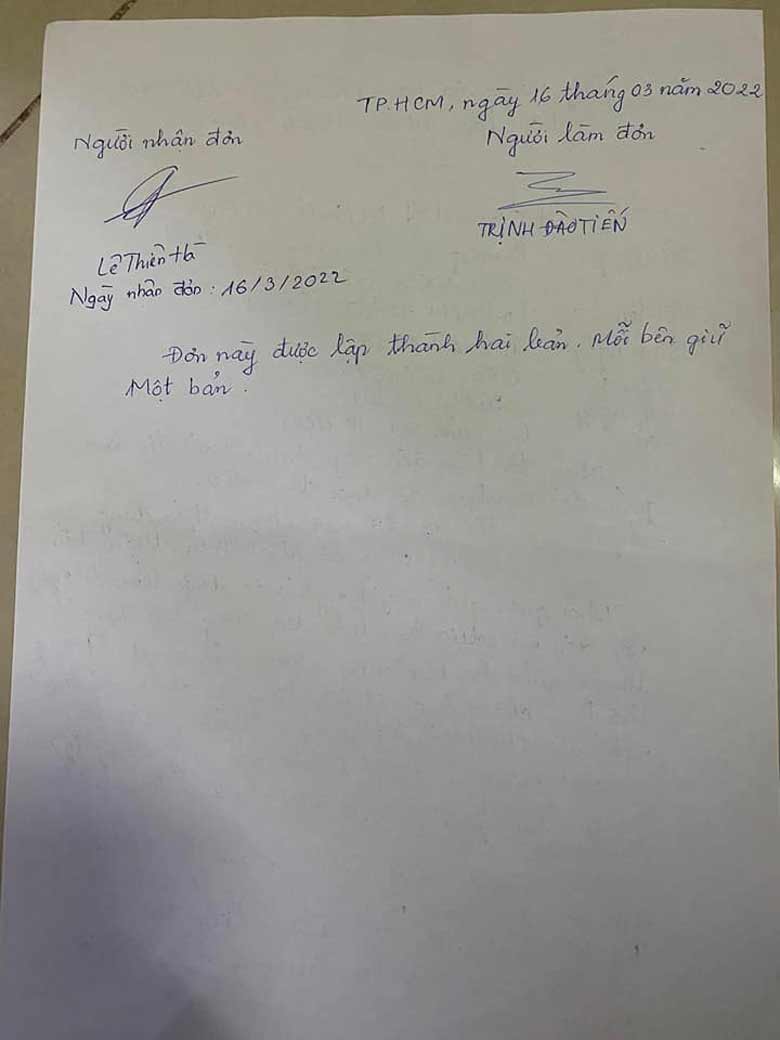 TP.HCM, ngày 16 tháng 03 năm 2022
Người nhận đơn
Người làm đơn
Lê Thiên Hà
TRỊNH ĐÀO TIẾN
Ngày nhận đơn : 16/3/2022
Đơn này được lập thành hai bản. Mỗi bên giữ
Một bản.